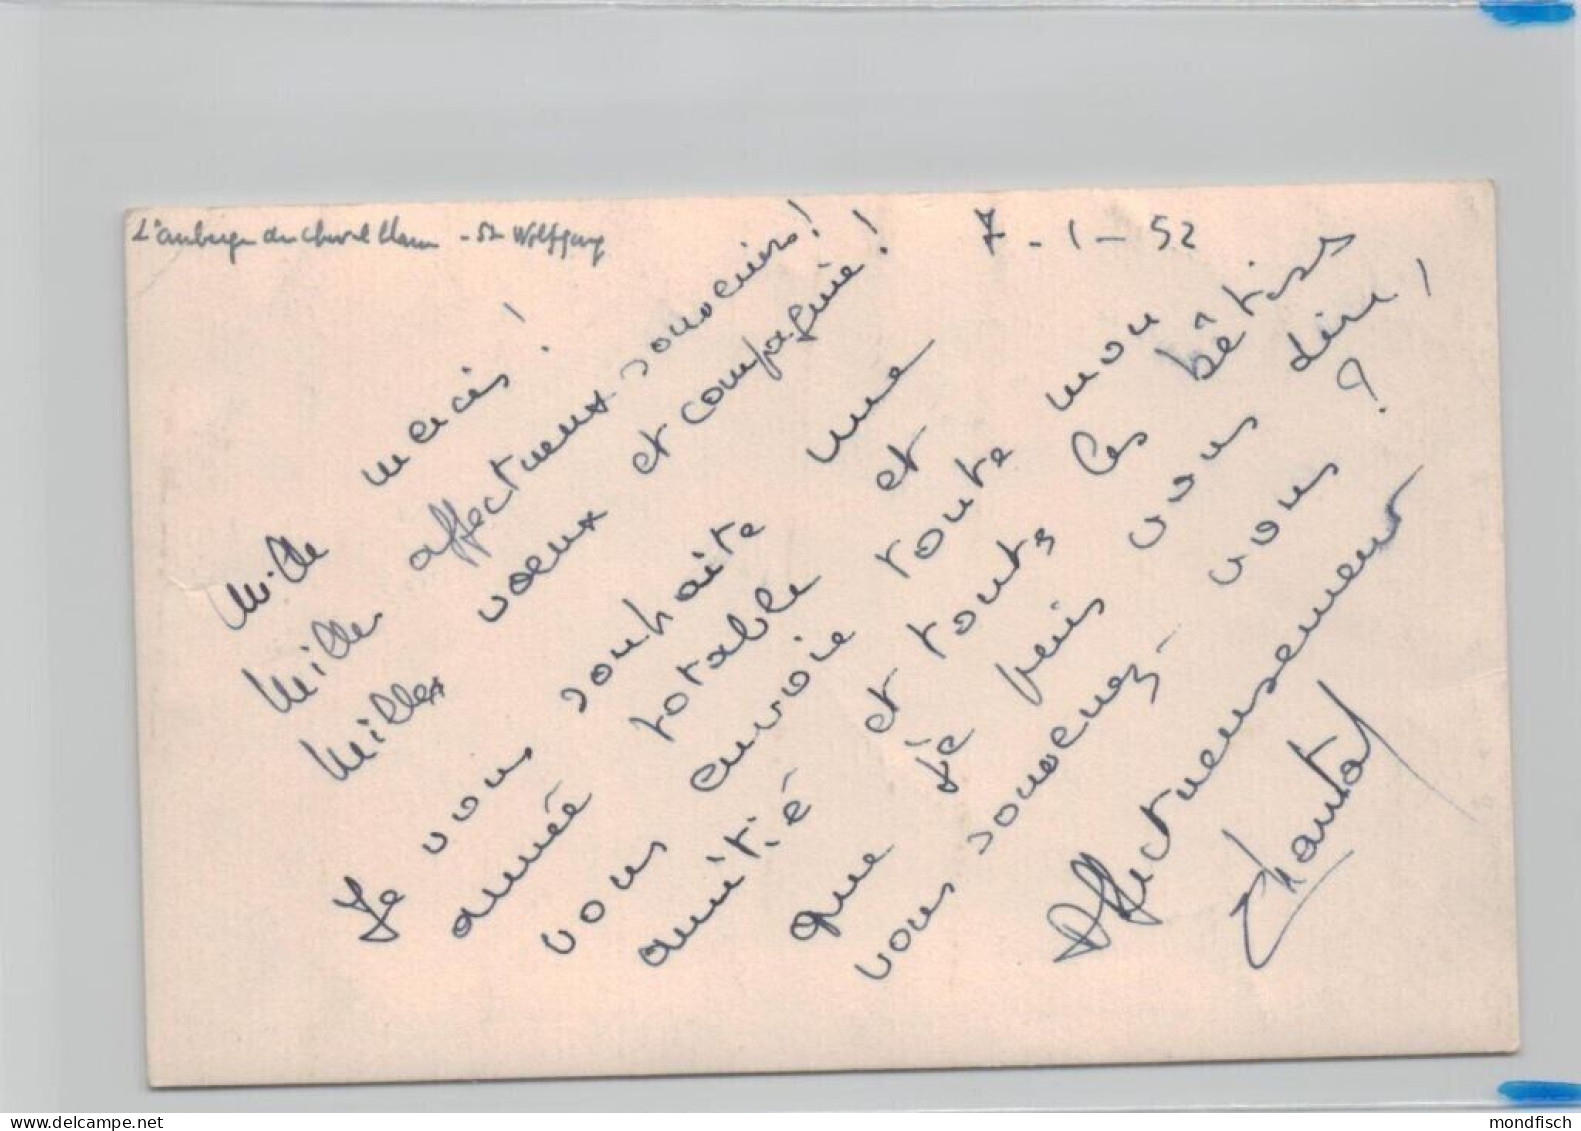 L'auberge du cheval blanc - St Wolfgang
7-1-52
Mille mercis !
Milles affectueux souvenirs !
Milles voeux et compagnie !
Je vous souhaite une
année potable et
vous envoie toute mon
amitié et toutes les bêtises
que je puis vous dire !
vous souvenez-vous ?
Affectueusement
Chantal
mondfisch